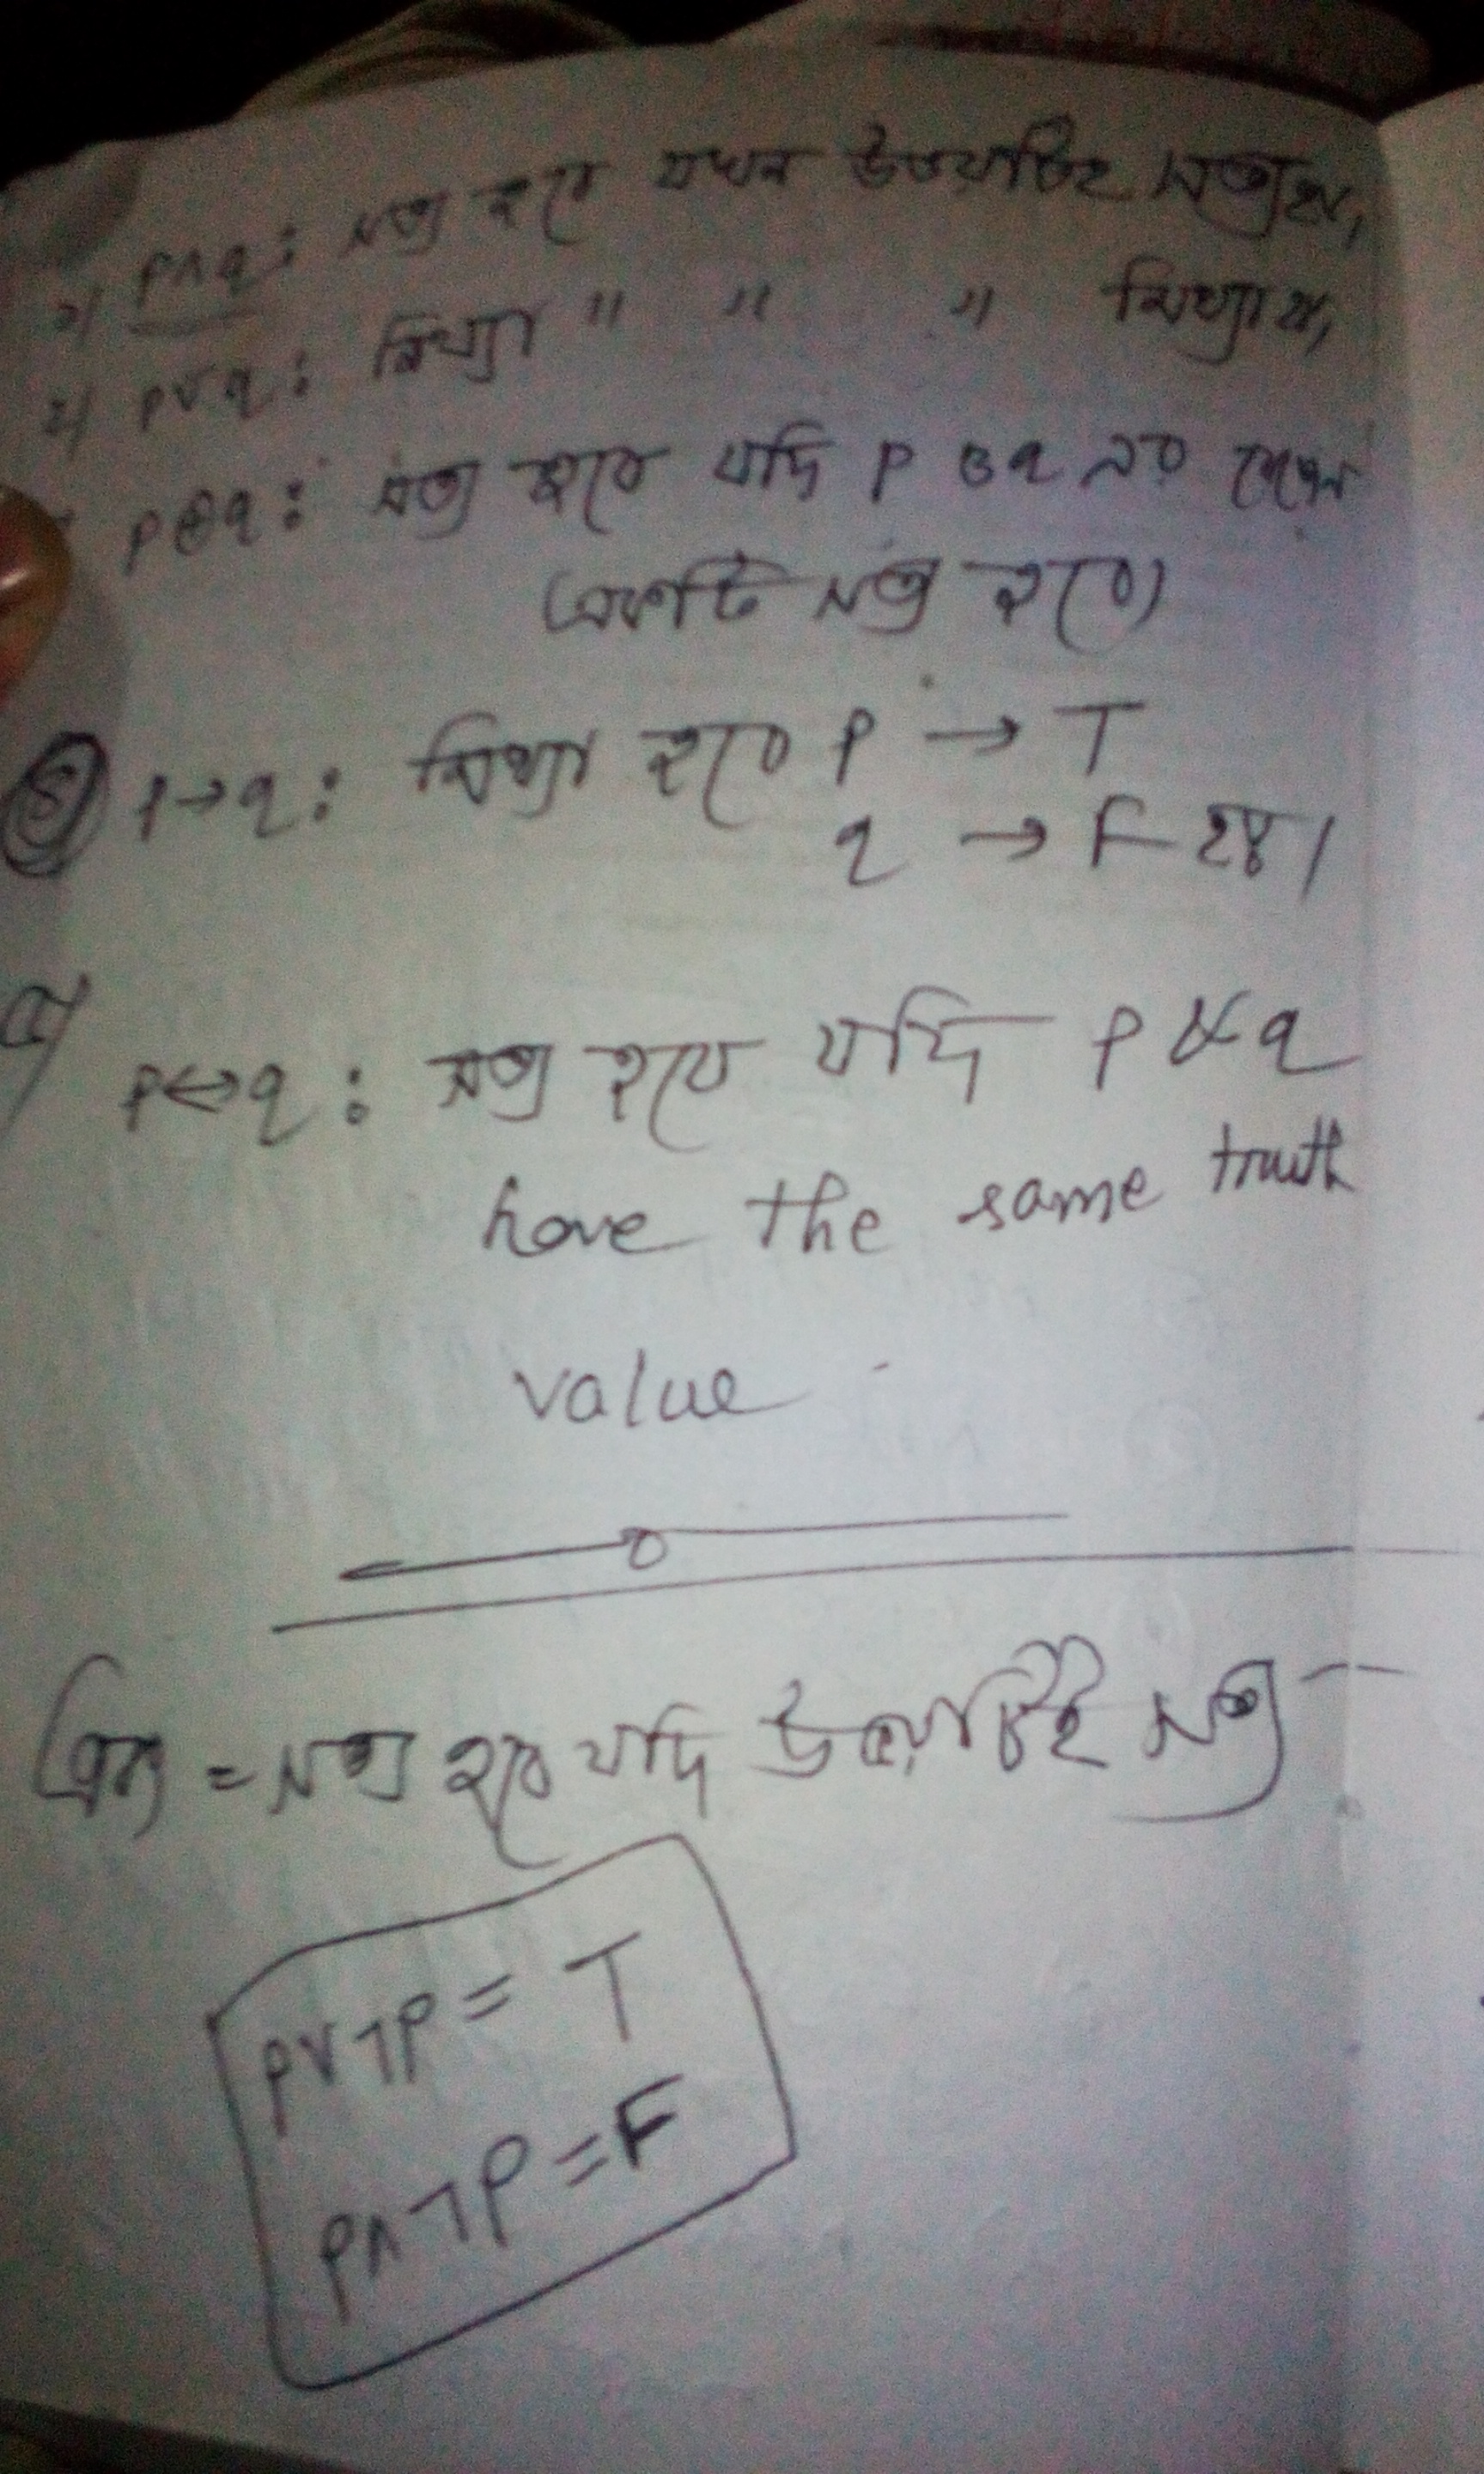 ১) p∧q: সত্য হবে যখন উভয়টিই সত্য হয়,
২) p∨q: মিথ্যা " " " মিথ্যা হয়,
p⊕q: সত্য হবে যদি p ও q এর যেকোন
একটি সত্য হবে)
৪) p→q: মিথ্যা হবে p → T
q → F হয়।
৫)
p↔q: সত্য হবে যদি p & q
have the same truth
value
= সত্য হবে যদি উভয়টিই সত্য
p∨¬p = T
p∧¬p = F